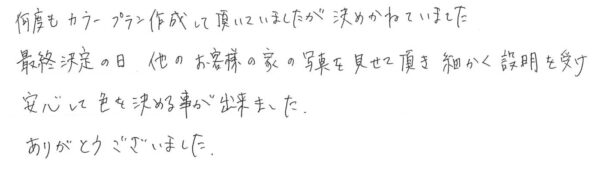 何度もカラープラン作成して頂いていましたが決めかねていました
最終決定の日 他のお客様の家の写真を見せて頂き細かく説明を受け
安心して色を決める事が出来ました.
ありがとうございました.